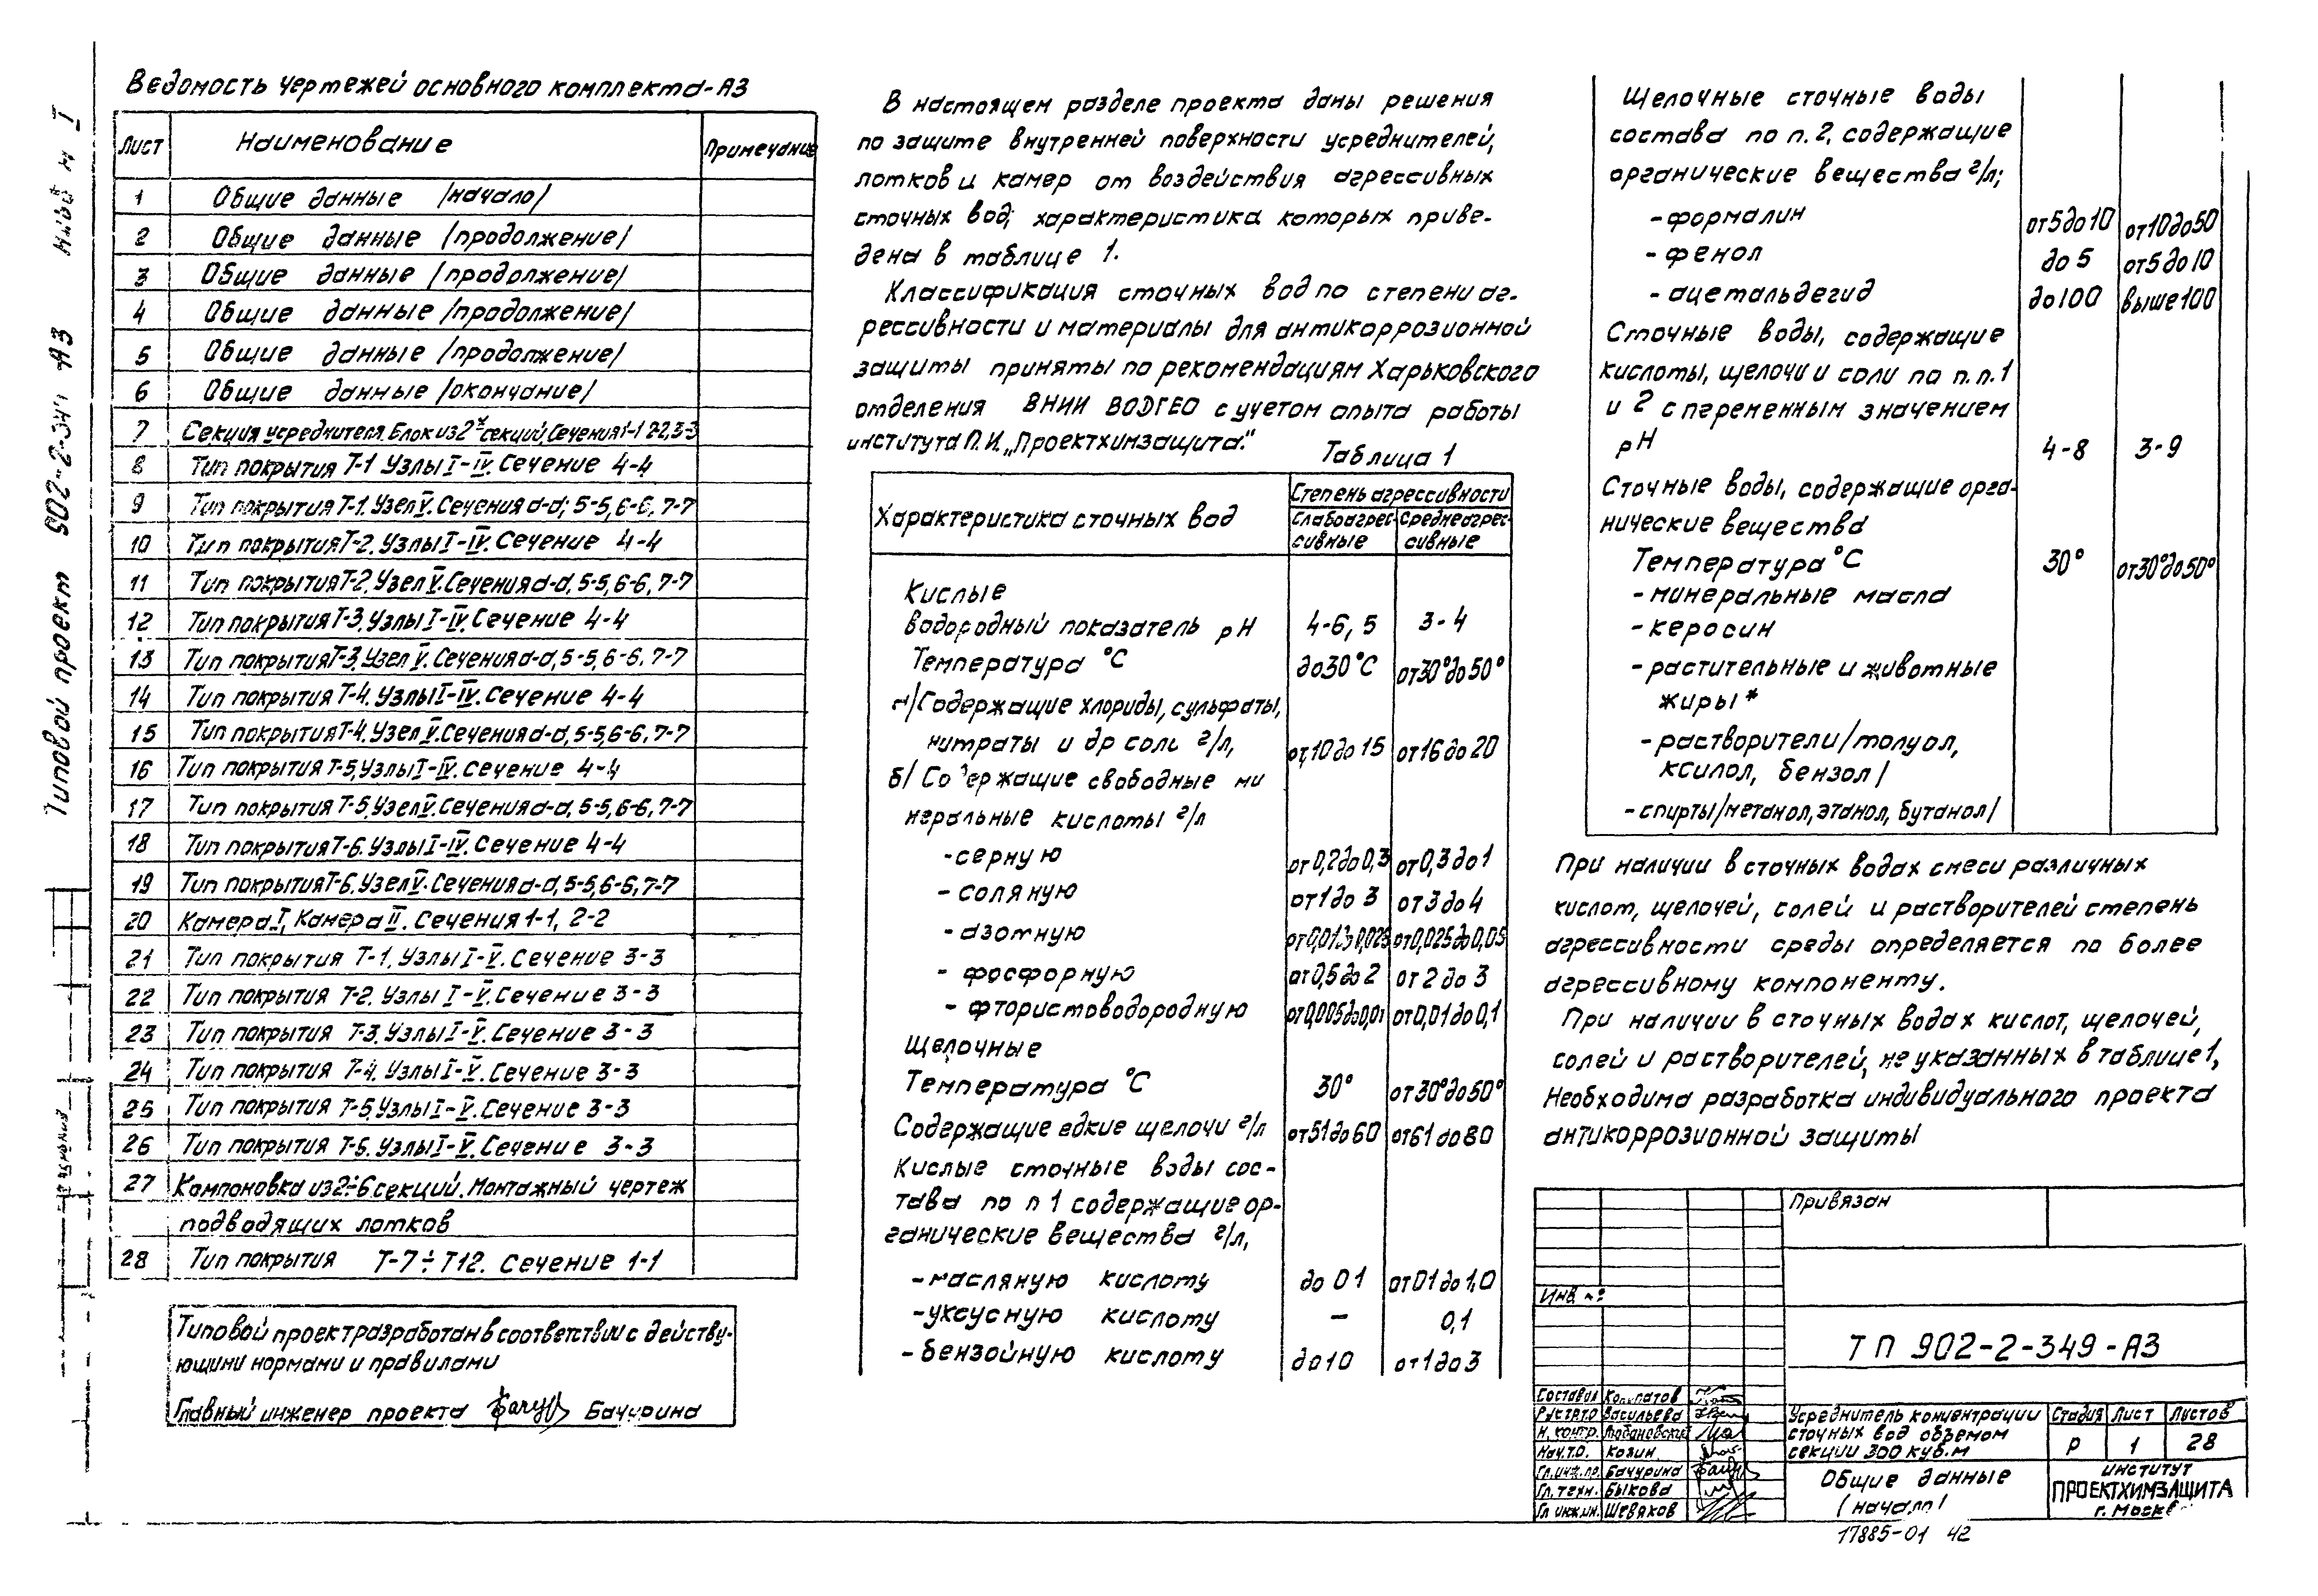 Типовой проект 902-2-349 АЗ
Ведомость чертежей основного комплекта-АЗ
Лист Наименование Примечание
1 Общие данные /начало/
2 Общие данные /продолжение/
3 Общие данные /продолжение/
4 Общие данные /продолжение/
5 Общие данные /продолжение/
6 Общие данные /окончание/
7 Секция усреднителя. Блок из 2х секций, Сечения 1-1 2-2, 3-3
8 Тип покрытия Т-1 Узлы I-IV. Сечение 4-4
9 Тип покрытия Т-1. Узел V. Сечения а-а; 5-5, 6-6, 7-7
10 Тип покрытия Т-2. Узлы I-IV. Сечение 4-4
11 Тип покрытия Т-2. Узел V. Сечения а-а, 5-5, 6-6, 7-7
12 Тип покрытия Т-3. Узлы I-IV. Сечение 4-4
13 Тип покрытия Т-3. Узел V. Сечения а-а, 5-5, 6-6, 7-7
14 Тип покрытия Т-4. Узлы I-IV. Сечение 4-4
15 Тип покрытия Т-4. Узел V. Сечения а-а, 5-5, 6-6, 7-7
16 Тип покрытия Т-5, Узлы I-IV. Сечение 4-4
17 Тип покрытия Т-5, Узел V. Сечения а-а, 5-5, 6-6, 7-7
18 Тип покрытия Т-6. Узлы I-IV. Сечение 4-4
19 Тип покрытия Т-6. Узел V. Сечения а-а, 5-5, 6-6, 7-7
20 Камера I, Камера II. Сечения 1-1, 2-2
21 Тип покрытия Т-1. Узлы I-V. Сечение 3-3
22 Тип покрытия Т-2. Узлы I-V. Сечение 3-3
23 Тип покрытия Т-3. Узлы I-V. Сечение 3-3
24 Тип покрытия Т-4. Узлы I-V. Сечение 3-3
25 Тип покрытия Т-5, Узлы I-V. Сечение 3-3
26 Тип покрытия Т-6. Узлы I-V. Сечение 3-3
27 Компоновка из 2÷6 секций. Монтажный чертеж
подводящих лотков
28 Тип покрытия Т-7÷Т12. Сечение 1-1
Типовой проект разработан в соответствии с действу-
ющими нормами и правилами
Главный инженер проекта Бачурина
В настоящем разделе проекта даны решения
по защите внутренней поверхности усреднителей,
лотков и камер от воздействия агрессивных
сточных вод, характеристика которых приве-
дена в таблице 1.
Классификация сточных вод по степени аг-
рессивности и материалы для антикоррозионной
защиты приняты по рекомендациям Харьковского
отделения ВНИИ ВОДГЕО с учетом опыта работы
института П.И. „Проектхимзащита."
Таблица 1
Характеристика сточных вод Степень агрессивности
Слабоагрес- Среднеагрес-
сивные сивные
Кислые
водородный показатель рН 4-6,5 3-4
Температура °С до 30°С от 30° до 50°
а/ Содержащие хлориды, сульфаты,
нитраты и др соль г/л, от 10 до 15 от 16 до 20
б/ Содержащие свободные ми
неральные кислоты г/л
-серную от 0,2 до 0,3 от 0,3 до 1
-соляную от 1 до 3 от 3 до 4
-азотную от 0,01 до 0,025 от 0,025 до 0,05
-фосфорную от 0,5 до 2 от 2 до 3
-фтористоводородную от 0,005 до 0,01 от 0,01 до 0,1
Щелочные
Температура °С 30° от 30° до 60°
Содержащие едкие щелочи г/л от 51 до 60 от 61 до 80
Кислые сточные воды сос-
тава по п 1 содержащие ор-
ганические вещества г/л,
-масляную кислоту до 01 от 01 до 1,0
-уксусную кислоту – 0,1
-бензойную кислоту до 10 от 1 до 3
Щелочные сточные воды
состава по п. 2, содержащие
органические вещества г/л;
-формалин от 5 до 10 от 10 до 50
-фенол до 5 от 5 до 10
-ацетальдегид до 100 выше 100
Сточные воды, содержащие
кислоты, щелочи и соли по п.п. 1
и 2 с переменным значением
рН 4-8 3-9
Сточные воды, содержащие орга-
нические вещества
Температура °С 30° от 30° до 50°
-минеральные масла
-керосин
-растительные и животные
жиры*
-растворители /толуол,
ксилол, бензол/
-спирты /метанол, этанол, бутанол/
При наличии в сточных водах смеси различных
кислот, щелочей, солей и растворителей степень
агрессивности среды определяется по более
агрессивному компоненту.
При наличии в сточных водах кислот, щелочей,
солей и растворителей, не указанных в таблице 1,
Необходима разработка индивидуального проекта
антикоррозионной защиты
Привязан
Инв. №
ТП 902-2-349-АЗ
Составил
Рук.гр.Т.О Васильева
Н. контр.
Нач.Т.О. Козин
Гл.инж.пр. Бачурина
Гл. техн. Быкова
Гл инж.ин. Шевяков
Усреднитель концентрации
сточных вод объемом
секции 300 куб.м
Стадия Лист Листов
Р 1 28
Общие данные
(начало)
ИНСТИТУТ
ПРОЕКТХИМЗАЩИТА
г. Москв
17885-01 42